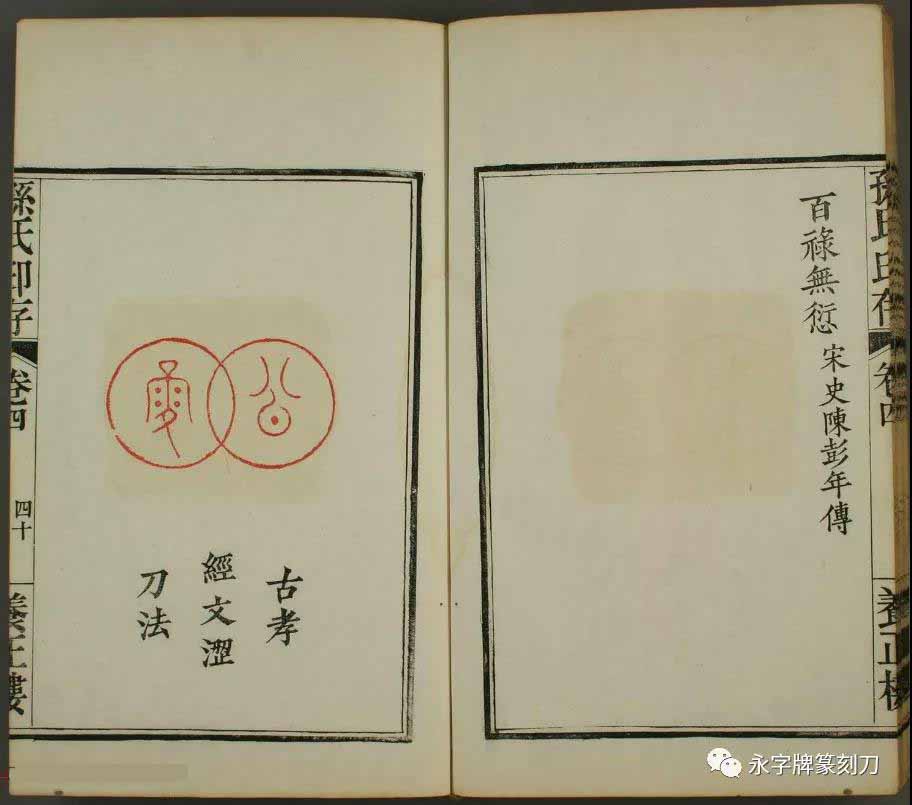 百祿無愆 宋史陳彭年傳
孫氏印存
卷四
養正樓
公
古孝
經文澀
刀法
孫氏印存
卷四
四十
養正樓
永字牌篆刻刀